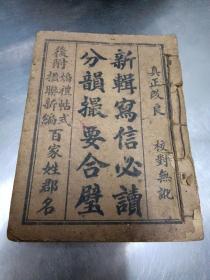 真正改良
校對無訛
新輯寫信必讀
分韻撮要合璧
後附婚禮帖式
楹聯新編百家姓郡名